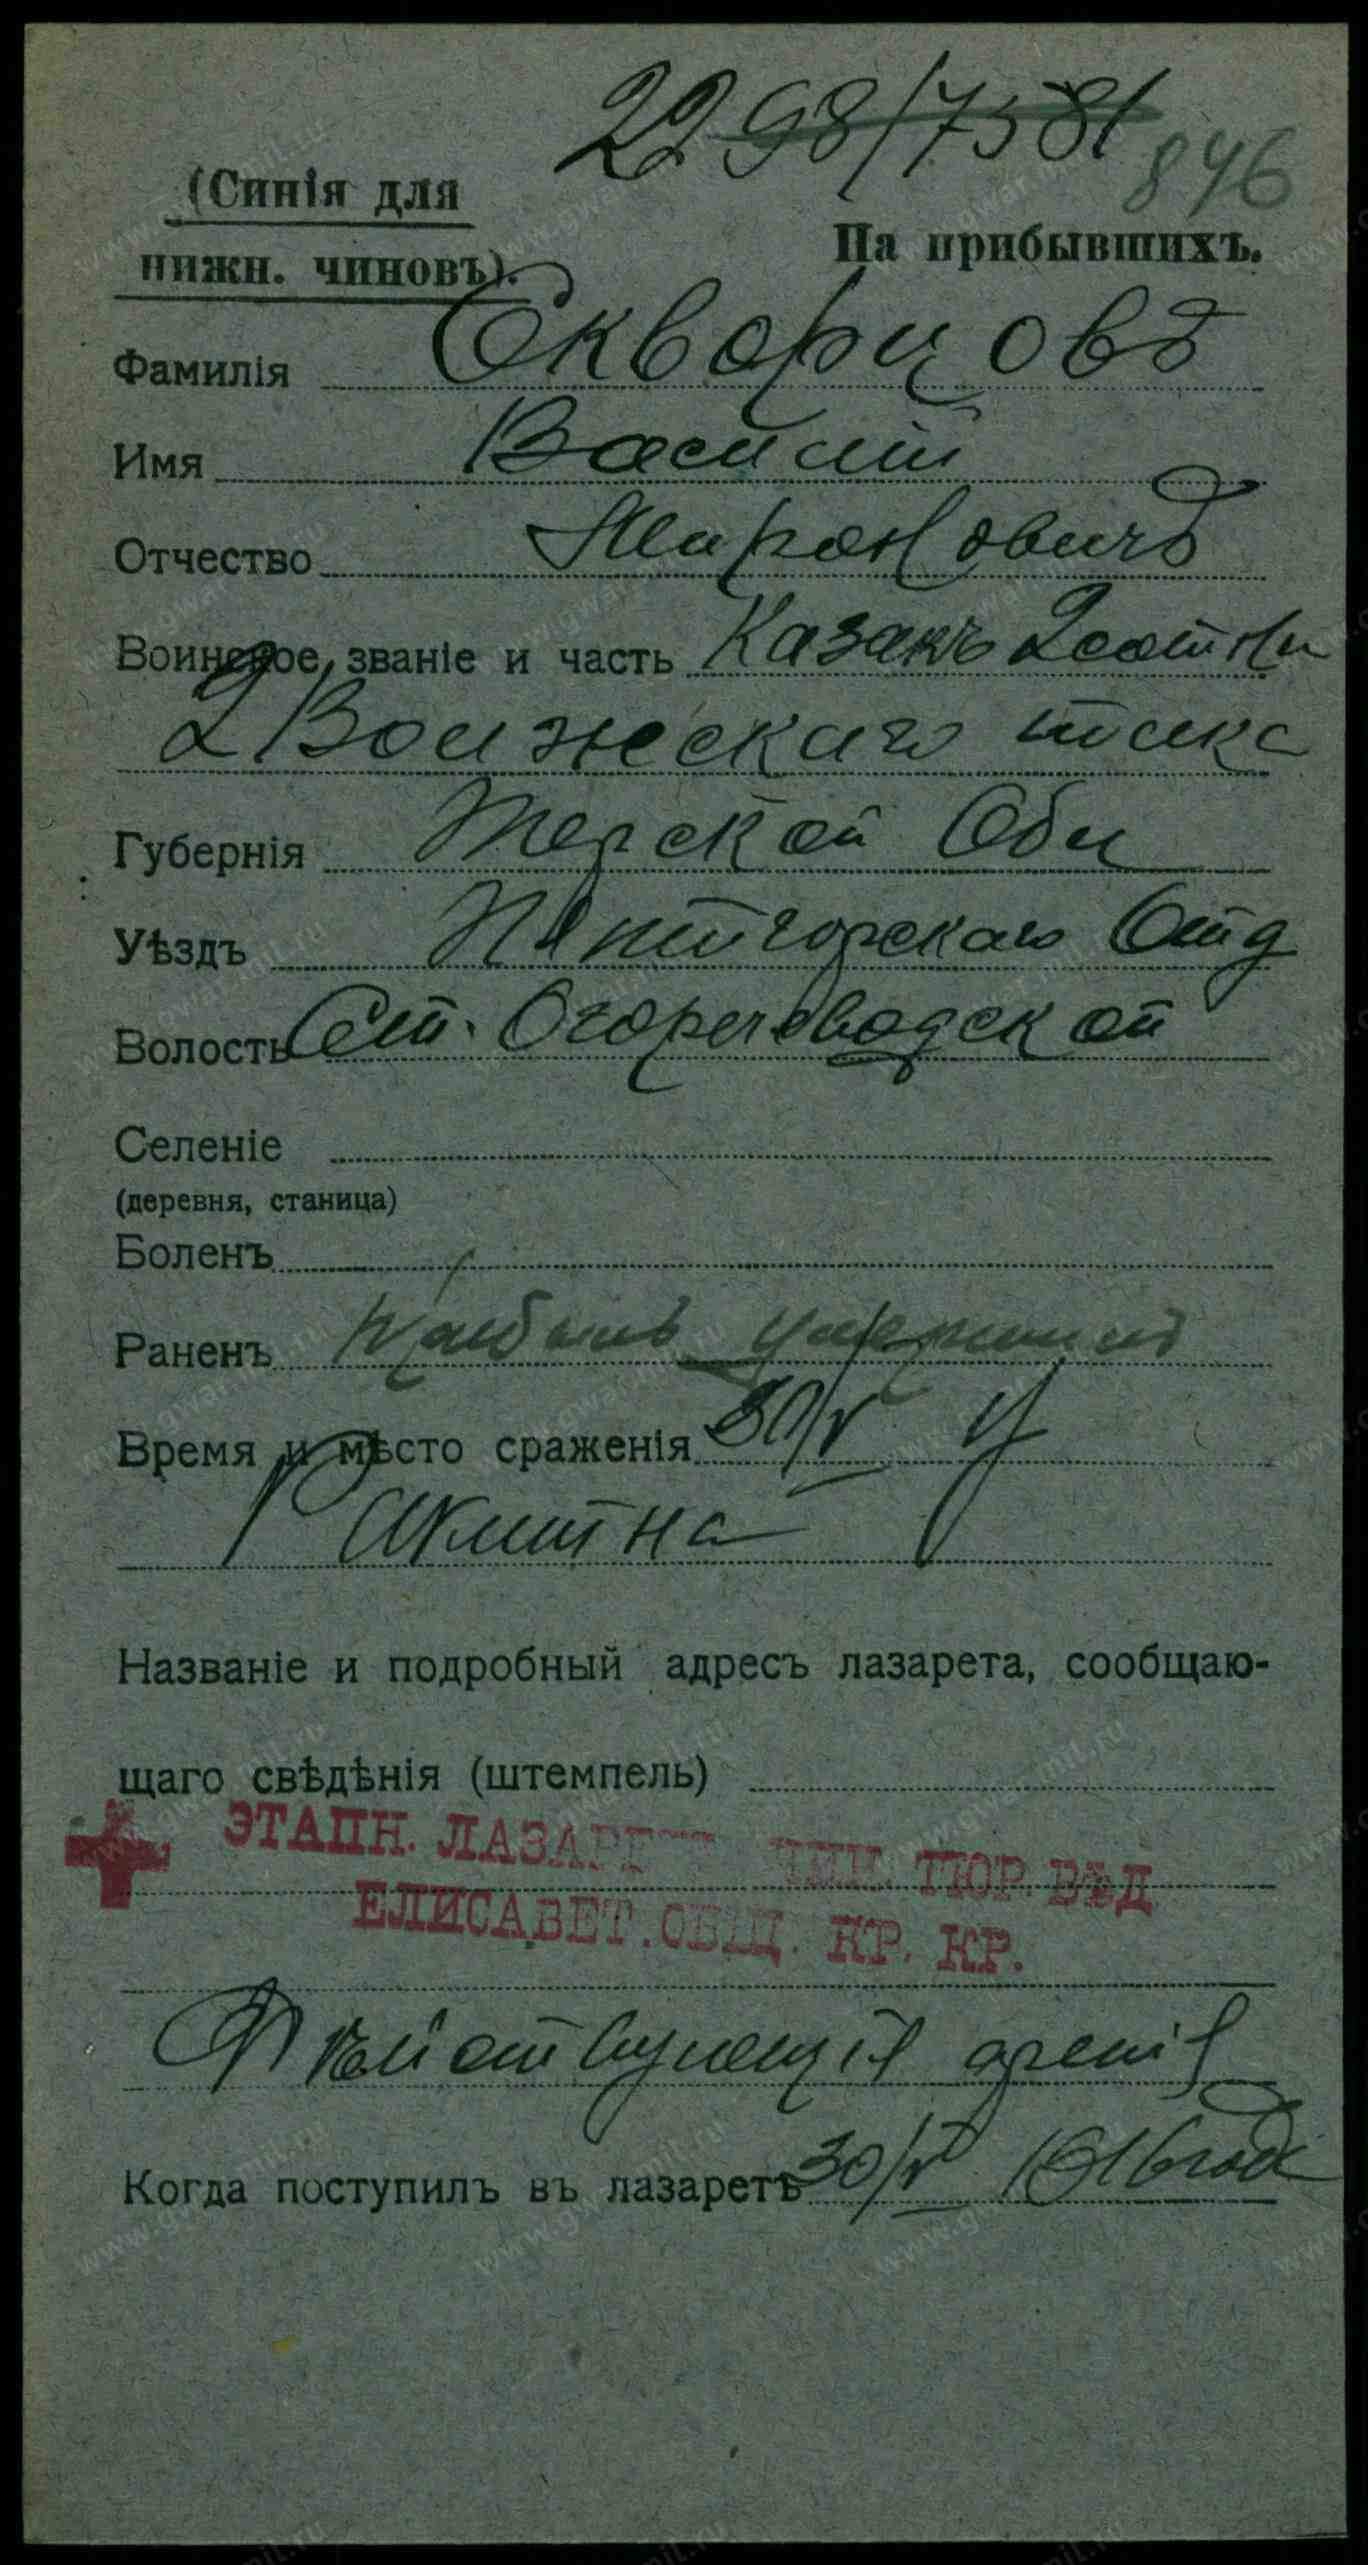 2298/7581
846
(Синія для
нижн. чиновъ).
На прибывшихъ.
Фамилія Скворцовъ
Имя Василій
Отчество Мироновичъ
Воинское званіе и часть Казакъ 2 сотни
2 Волжскаго полка
Губернія Терской Обл
Уѣздъ Пятигорскаго Отд
Волость Ст. Огоричеводской
Селеніе
(деревня, станица)
Боленъ
Раненъ прибылъ умершимъ
Время и мѣсто сраженія 30/V у
Ракитна
Названіе и подробный адресъ лазарета, сообщаю-
щаго свѣдѣнія (штемпель)
ЭТАПН. ЛАЗАРЕТЪ ЧИН. ТЮР. ВѢД
ЕЛИСАВЕТ. ОБЩ. КР. КР.
Дѣйствующія арміѣ
Когда поступилъ въ лазаретъ 30/V 1916 года